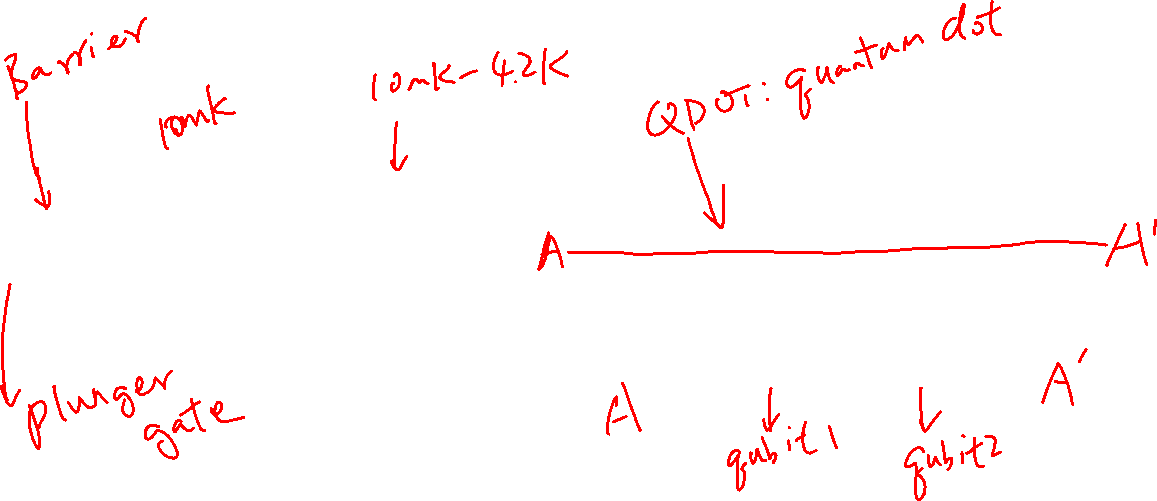 Barrier
10mK
10mK-4.2K
QDOT: quantum dot
A
A'
plunger
gate
A
A'
qubit1
qubit2